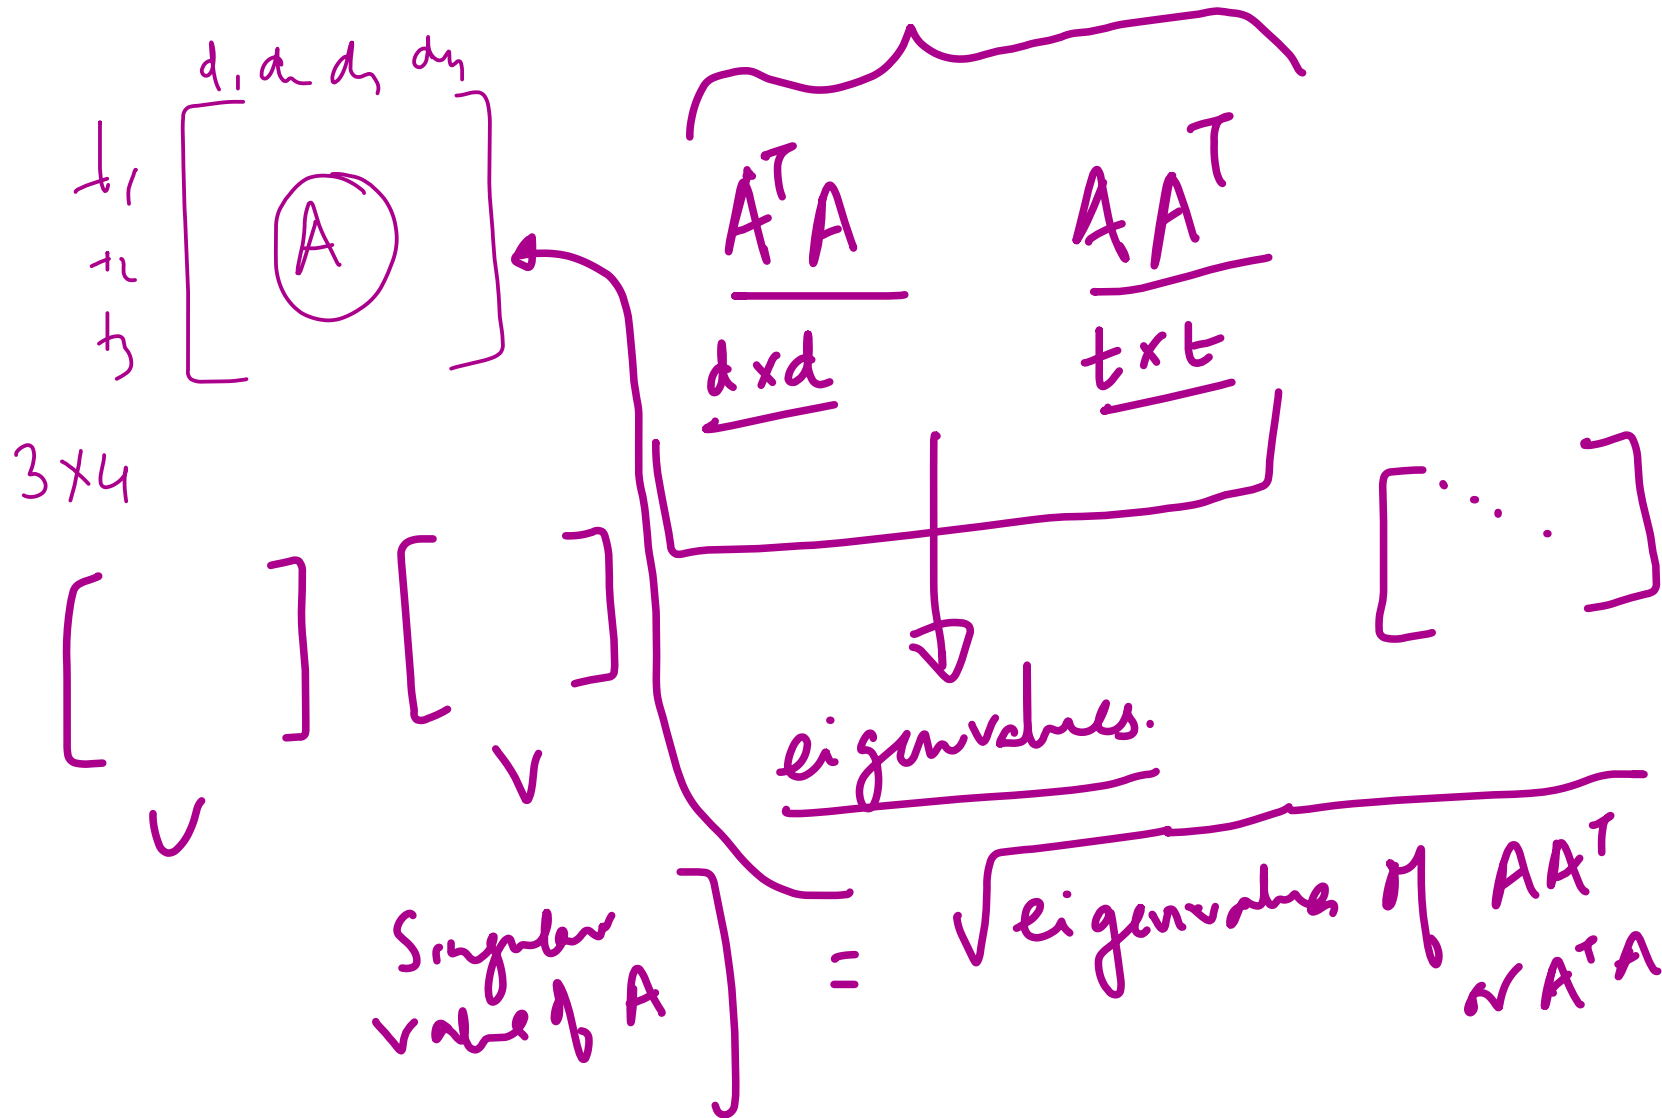 d1 d2 d3 d4
t1
t2
t3
A
3×4
AᵀA AAᵀ
d×d t×t
eigenvalues.
U V
Singular value of A = √eigenvalues of AAᵀ
or AᵀA